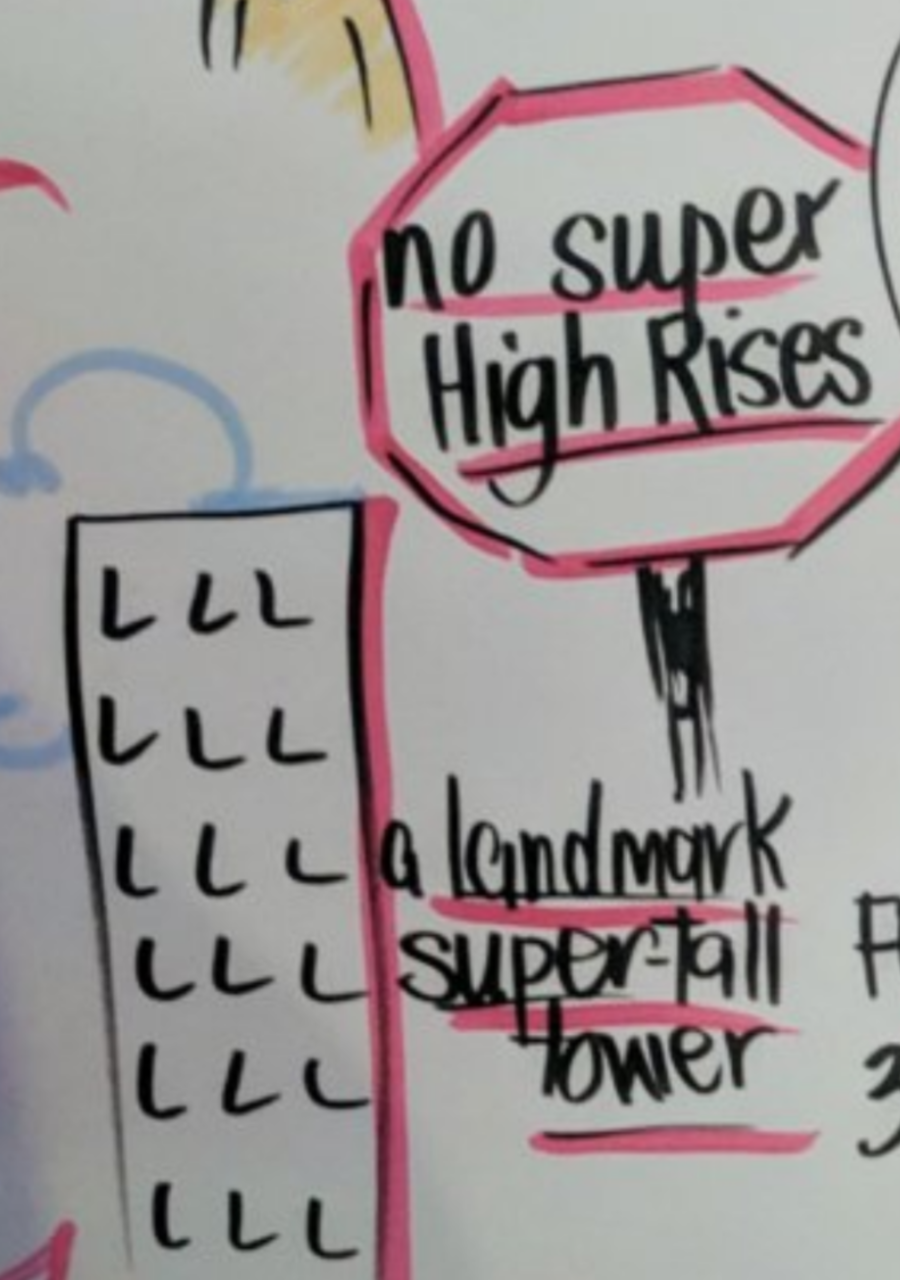 no super
High Rises
a landmark
super-tall
tower